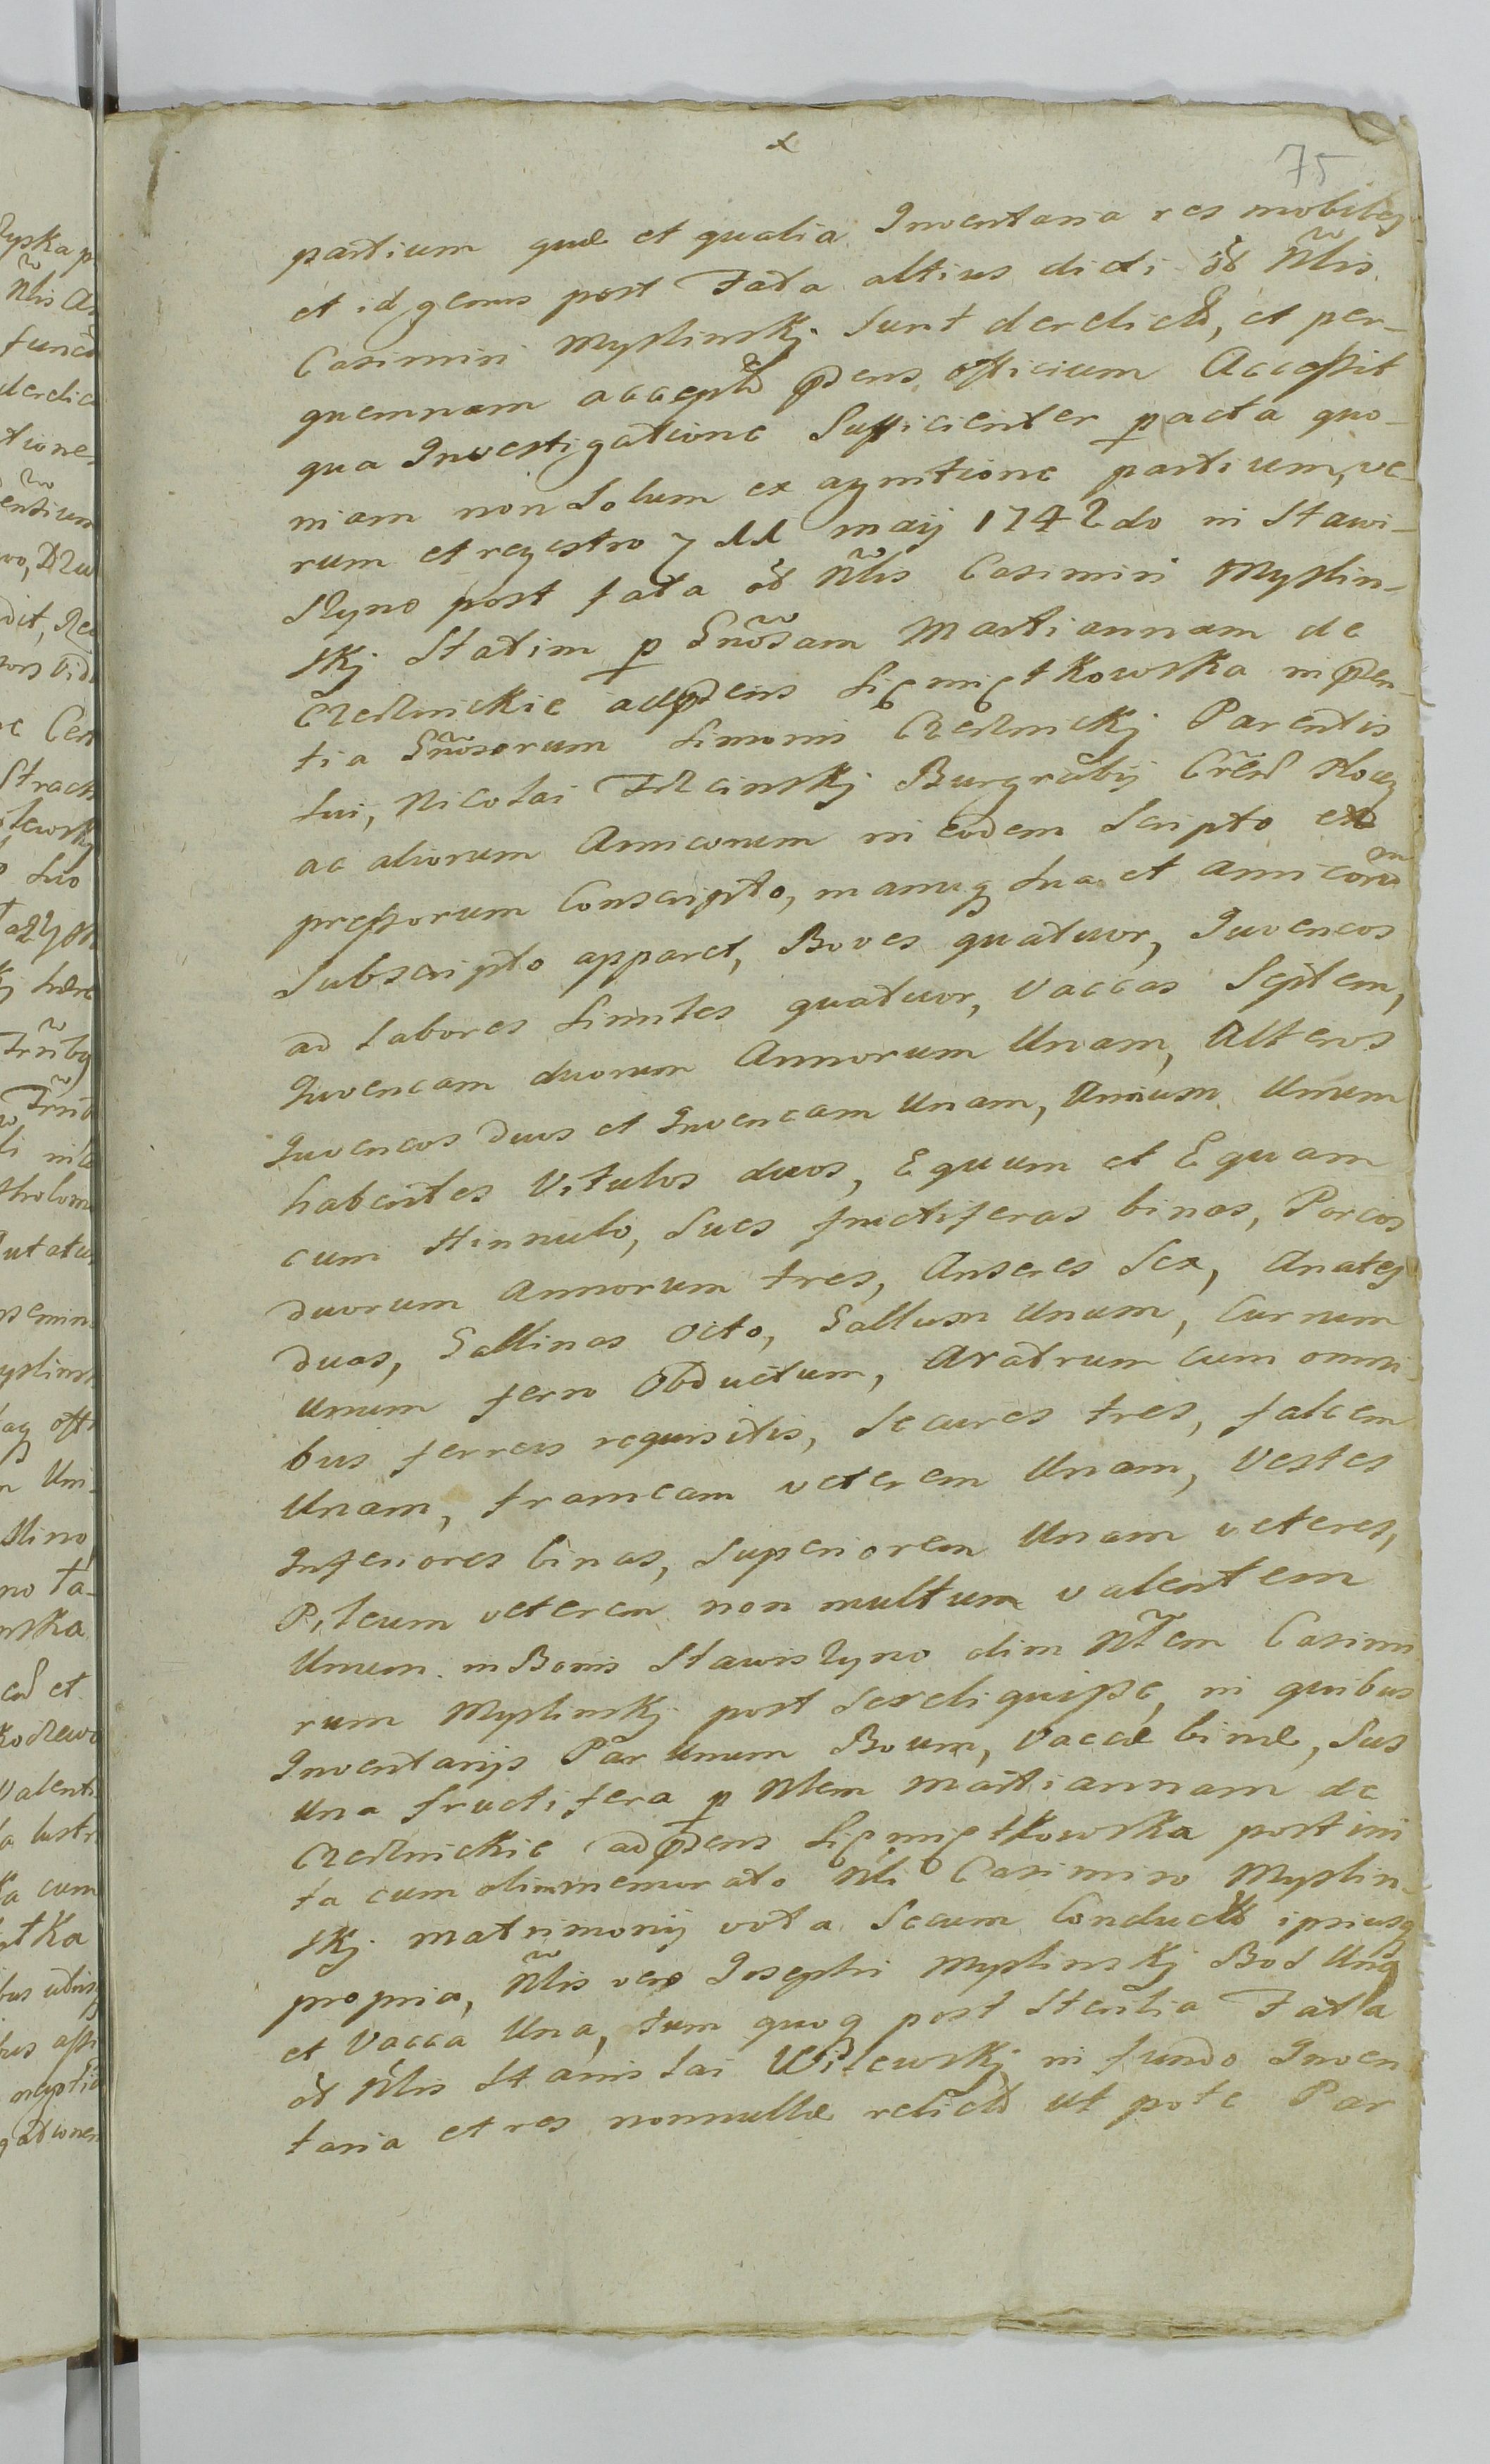 x
75
partium quæ et qualia Inventaria res mobiles
et id genus post Fata altius dicti ol Nlis
Casimiri Myslinskj sunt derelicta, et per-
quemnam accepta pdens officium Accessit
qua Investigatione Sufficienter pacta quo-
niam non Solum ex agnitione partium, ve-
rum et regestro 7 maij 1742do in Stawi-
szyno post fata ol Nlis Casimiri Myslin-
skj Statim p Gnosam Martiannam de
Czeslnickie adpdens Sięmiętkowska in pden-
tia Gnosorum Simonis Czeslnickj Parentis
Sui, Nicolai Burgrabij
ac aliorum Amicorum in eodem Scripto ex
pressorum Conscripto, manuq sua et Amicorum
Subscripto apparet, Boves quatuor, Juvencos
ad Labores Similes quatuor, Vaccas Septem,
Juvencam duorum Annorum Unam, Alteros
Juvencos duos et Juvencam Unam, Annum Unum
habentes Vitulos duos, Equum et Equam
cum Hinnulo, Sues fructiferas binas, Porcos
duorum Annorum tres, Anseres Sex, Anates
duas, Gallinas octo, Gallum Unum, Currum
Unum ferro Obductum, Aratrum cum omni-
bus ferreis requisitis, Secures tres, falcem
Unam, frameam veterem Unam, Vestes
Inferiores binas, Superiorem Unam veteres,
Pileum veterem non multum valentem
Unum in Bonis Stawiszyno olim Nlem Casimi
rum Myslinskj post Se reliquisse, in quibus
Inventarijs Par Unum Boum, Vaccæ binæ, Sus
Una fructifera p Nlem Martiannam de
Czeslnickie adpdens Sięmiętkowska post ini
ta cum olim memorato Nli Casimiro Myslin-
skj matrimonij vota Secum Conducta ipsiusq
propria, Nlis vero Josephi Myslinskj Bos Unq
et Vacca Una, tum quoq post Sterilia Fata
ol Nlis Stanislai Witewskj in fundo Inven
taria et res nonnullæ relictæ ut pote Par